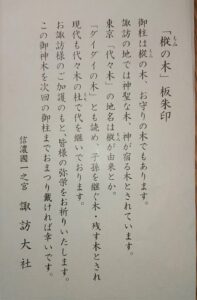 「樅の木」板朱印
もみ
御柱は樅の木、お守りの木でもあります。
諏訪の地では神聖な木、神が宿る木とされています。
東京「代々木」の地名は樅が由来とか。
「ダイダイの木」とも読め、子孫を継ぐ木・残す木とされ
現代も代々木の杜で代を継いでおります。
お諏訪様のご加護のもと、皆様の弥栄をお祈りいたします。
この御神木を次回の御柱までおまつり戴ければ幸いです。
信濃國一之宮 諏訪大社